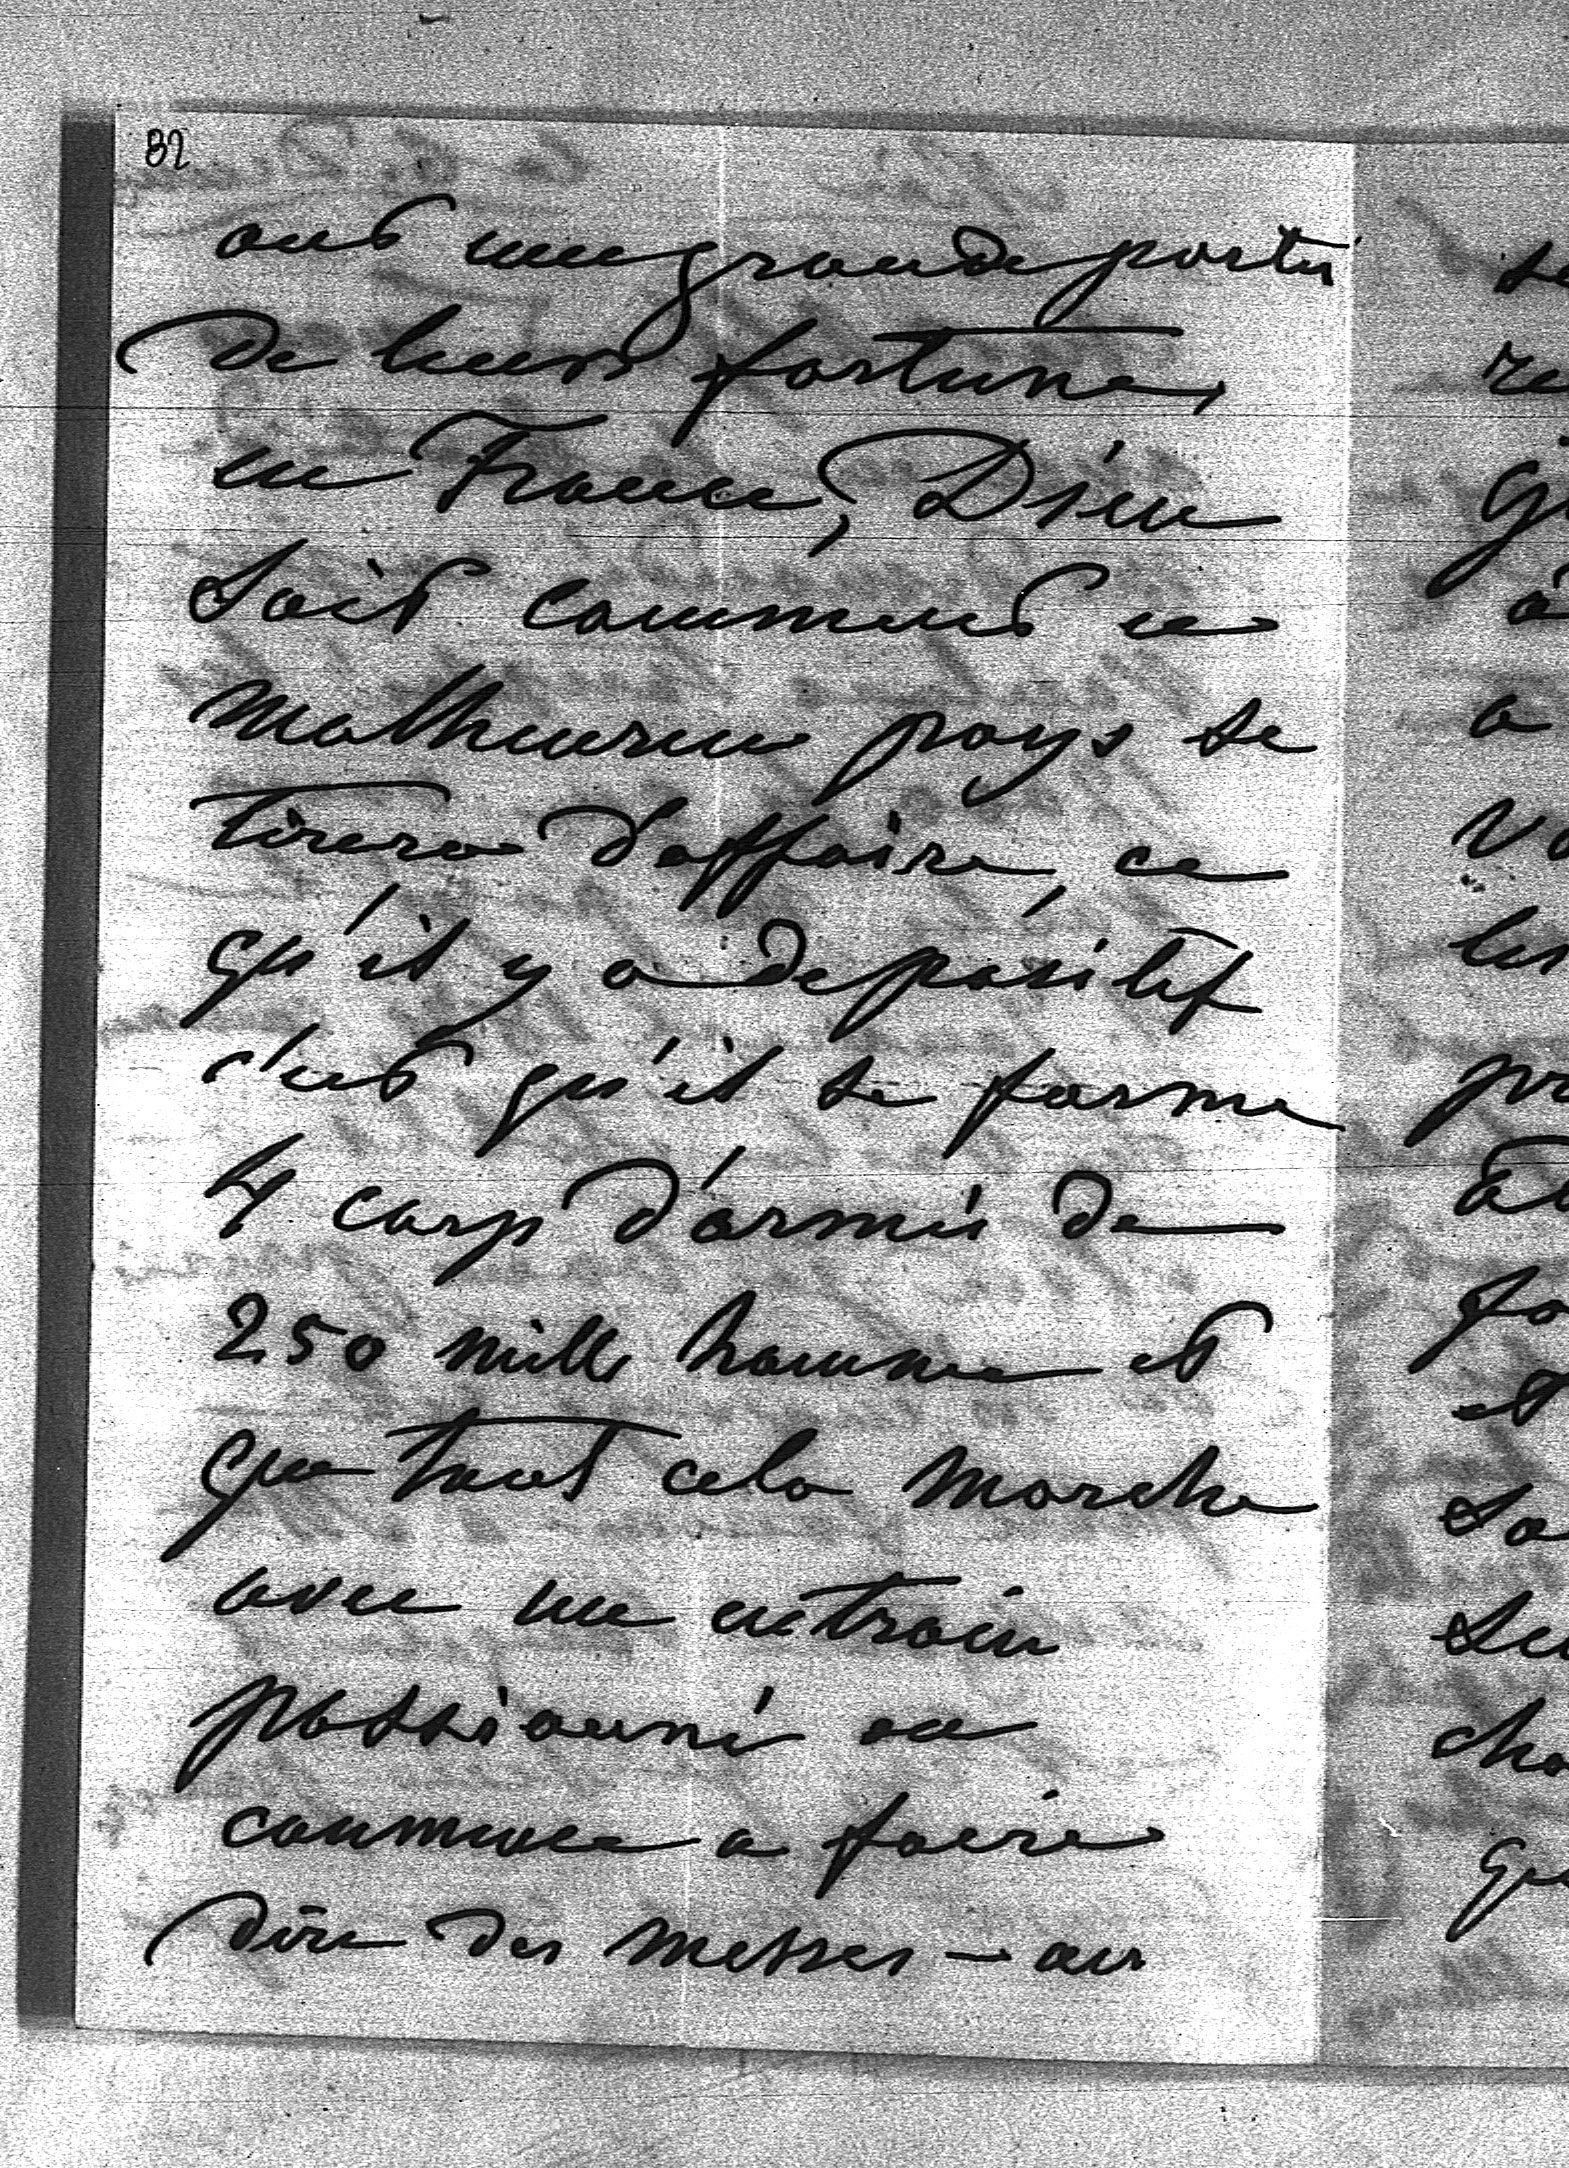 32
ont une grande partie
de leurs fortunes
en France, Dieu
Sait comment ce
malheureux pays se
tirera d'affaire, ce
qu'il y a de positif
c'est qu'il se forme
4 corp d'armée de
250 mille homme et
que tout cela marche
avec un entrain
passionné on
commence a faire
dire des messes - au